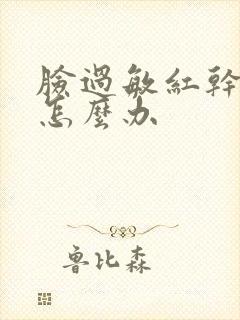 臉過敏紅幹
怎麼办
魯比森